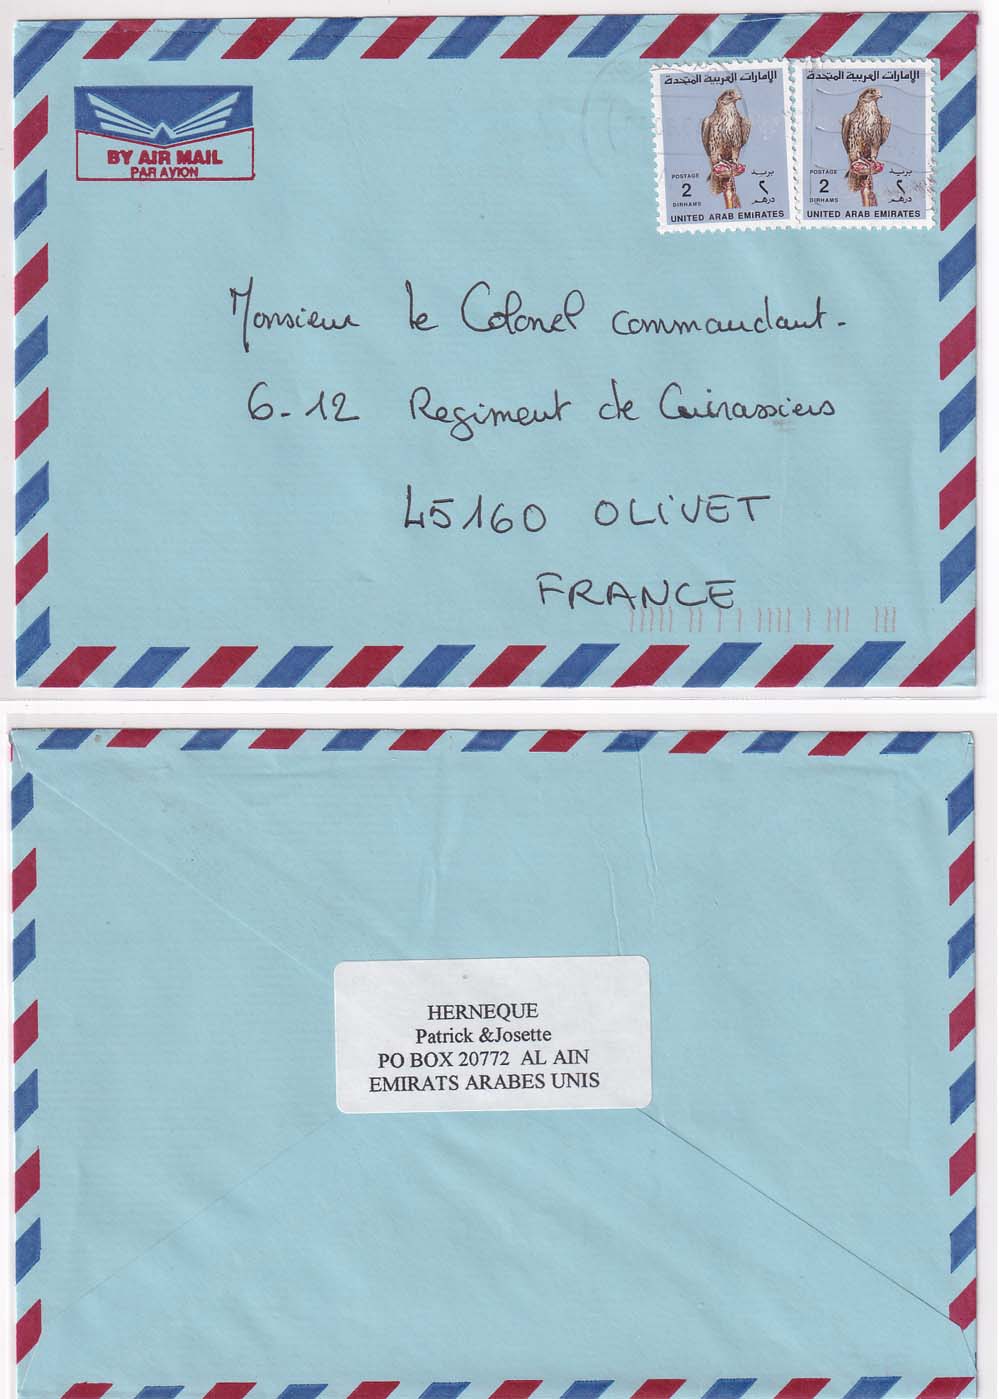 BY AIR MAIL
PAR AVION
الإمارات العربية المتحدة
POSTAGE
بريد
2
٢
DIRHAMS
درهم
UNITED ARAB EMIRATES
الإمارات العربية المتحدة
POSTAGE
بريد
2
٢
DIRHAMS
درهم
UNITED ARAB EMIRATES
Monsieur le Colonel commandant.
6-12 Regiment de Cuirassiers
45160 OLIVET
FRANCE
HERNEQUE
Patrick &Josette
PO BOX 20772 AL AIN
EMIRATS ARABES UNIS